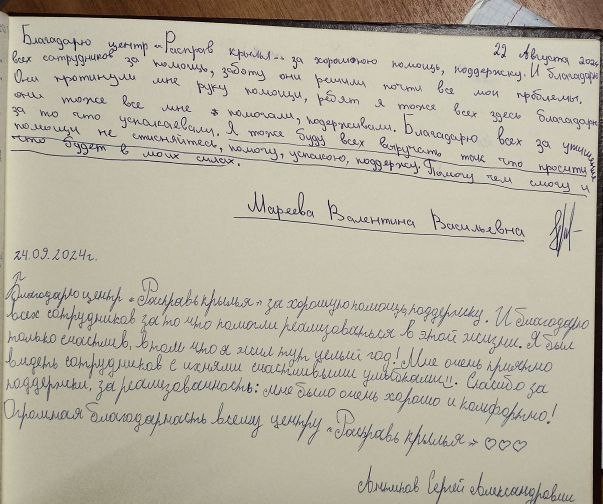 22 Августа 2024
Благодарю центр «Расправь крылья» за хорошую помощь, поддержку. И благодарю
всех сотрудников за помощь, заботу они решили почти все мои проблемы.
Они протянули мне руку помощи, ребят я тоже всех здесь благодарю
они тоже все мне помогали, подерживали. Благодарю всех за
за то что успакаевали. Я тоже буду всех выручать так что просите
помощи не стисняйтесь, помогу, успакою, поддержу. Помогу чем смогу и
что будет в моих силах.
Мареева Валентина Васильевна
24.09.2024г.
Благодарю центр «Расправь крылья» за хорошую помощь поддержку. И благодарю
всех сотрудников за то что помогли реализоваться в этой жизни. Я был
только счастлив, в том что я жил тут целый год! Мне очень приятно
видеть сотрудников с ихними счастливыми улыбками". Спасибо за
поддержки, за реализованность: мне было очень хорошо и комфортно!
Огромная благодарность всему центру «Расправь крылья» ♡♡♡
Сергей Александрович